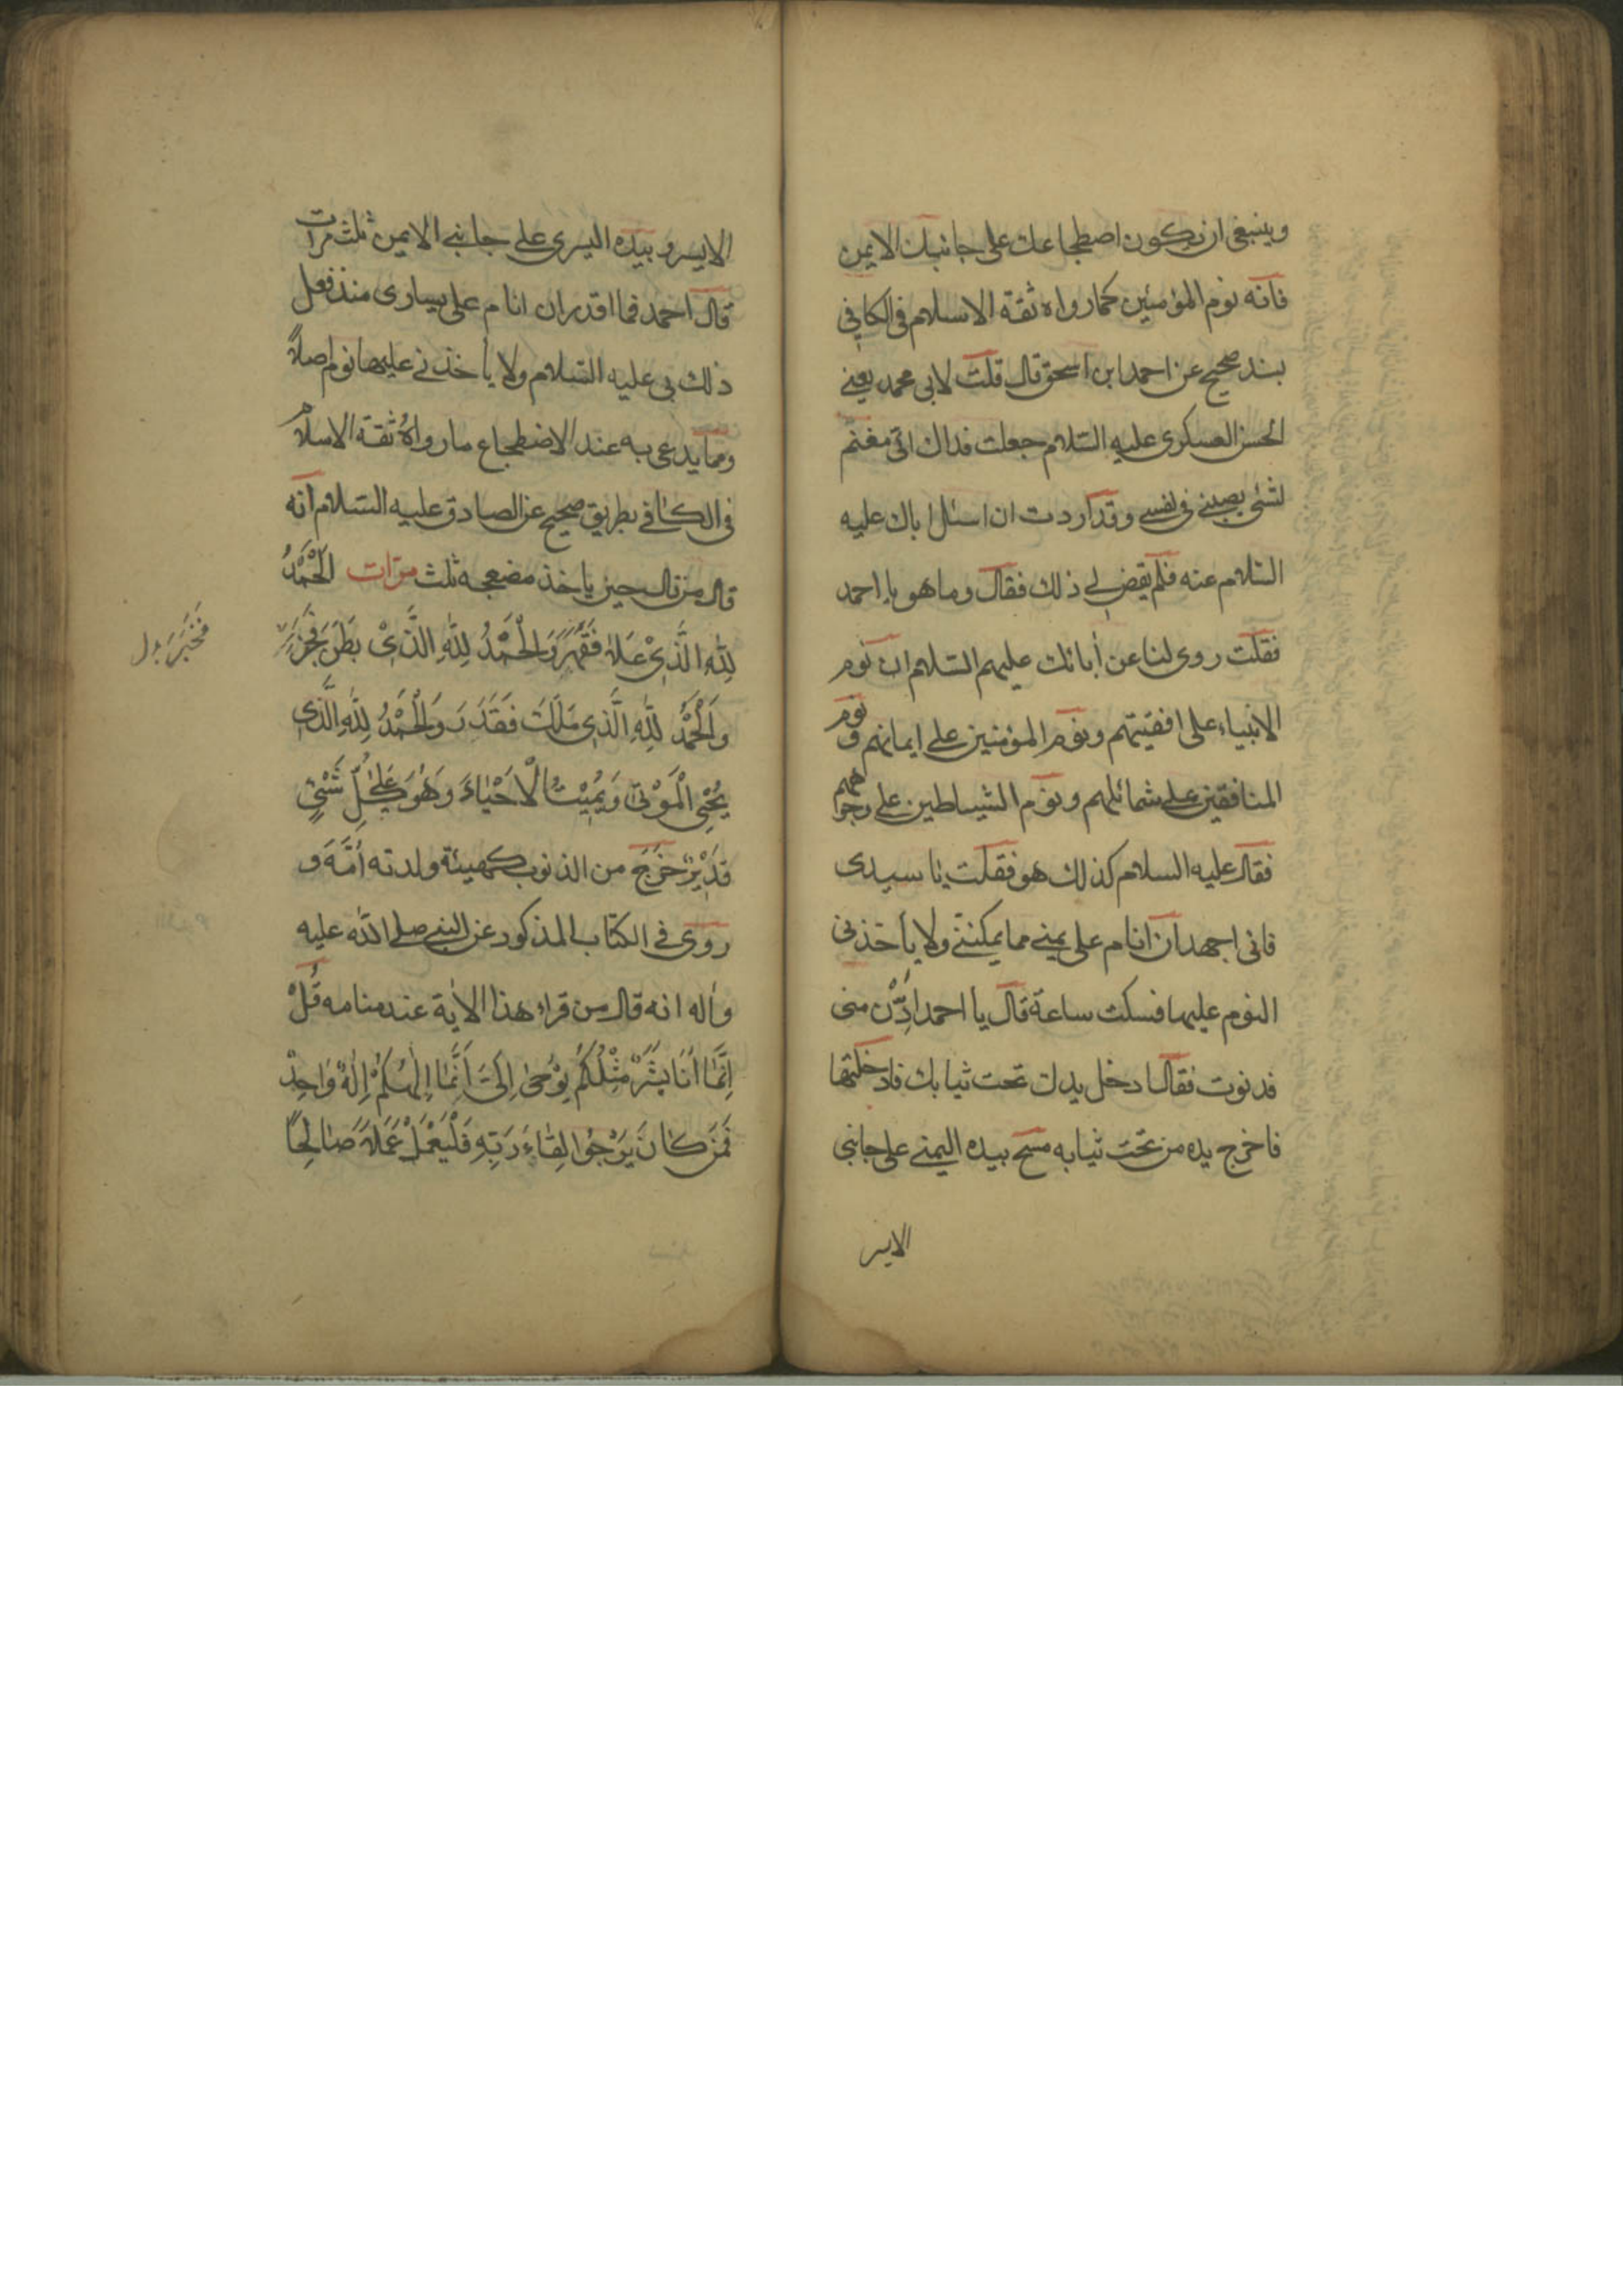 وينبغى ان يكون اضطجاعك على جانبك الايمن
فانه نوم المؤمنين كما رواه ثقة الاسلام فى الكافى
بسند صحيح عن احمد ابن اسحق قال قلت لابى محمد يعنى
الحسن العسكرى عليه السّلام جعلت فداك انى مغتم
لشئ يصيبنى فى نفسى وقد اردت ان اسئل اباك عليه
السّلام عنه فلم يقض لى ذلك فقال وما هو يا احمد
فقلت روى لنا عن أبائك عليهم السّلام ان نوم
الانبياء على اقفيتهم ونوم المؤمنين على ايمانهم ونوم
المنافقين على شمائلهم ونوم الشياطين على وجوههم
فقال عليه السلام كذلك هو فقلت يا سيدى
فانى اجهد ان انام على يمينى مما يمكننى ولا يأخذنى
النوم عليها فسكت ساعة قال يا احمد اُدْن منى
فدنوت فقال ادخل يدك تحت ثيابك فادخلتها
فاخرج يده من تحت ثيابه مسح بيده اليمنى على جانبى
الايسر
الايسر وبيده اليسرى على جانبى الايمن ثلث مرات
قال احمد فما اقدر ان انام على يسارى منذ فعل
ذلك بى عليه السّلام ولا يأخذنى عليها نوم اصلاً
ومما يدعى به عند الاضطجاع ما رواهُ ثقة الاسلام
فى الكافى بطريق صحيح عن الصادق عليه السّلام انه
قال من قال حين ياخذ مضعجه ثلث مرّات اَلْحَمْدُ
لِلّٰهِ الَّذِىْ عَلَا فَقَهَرَ وَالْحَمْدُ لِلّٰهِ الَّذِىْ بَطَنَ فَخَبَرَ
فَخَبَرَ بدل
وَالْحَمْدُ لِلّٰهِ الَّذِى مَلَكَ فَقَدَرَ وَالْحَمْدُ لِلّٰهِ الَّذِى
يُحْيِى الْمَوْتىٰ وَيُمِيْتُ الْاَحْيَاءَ وَهُوَ عَلىٰ كُلِّ شَىْئٍ
قَدِيْرٌ خَرَجَ من الذنوب كهيئة ولدته اُمَّهُ و
روى فى الكتاب المذكور عن النبى صلى اللّٰه عليه
وأله انه قال من قراء هذا الاٰية عند منامه قُلْ
اِنَّمَا اَنَا بَشَرٌ مِثْلُكُمْ يُوْحىٰ اِلَىَّ اَنَّمَا اِلٰهُكُمْ اِلٰهٌ وَاحِدٌ
فَمَنْ كَانَ يَرْجُوا لِقَاءَ رَبِّهِ فَلْيَعْمَلْ عَمَلاً صَالِحًا